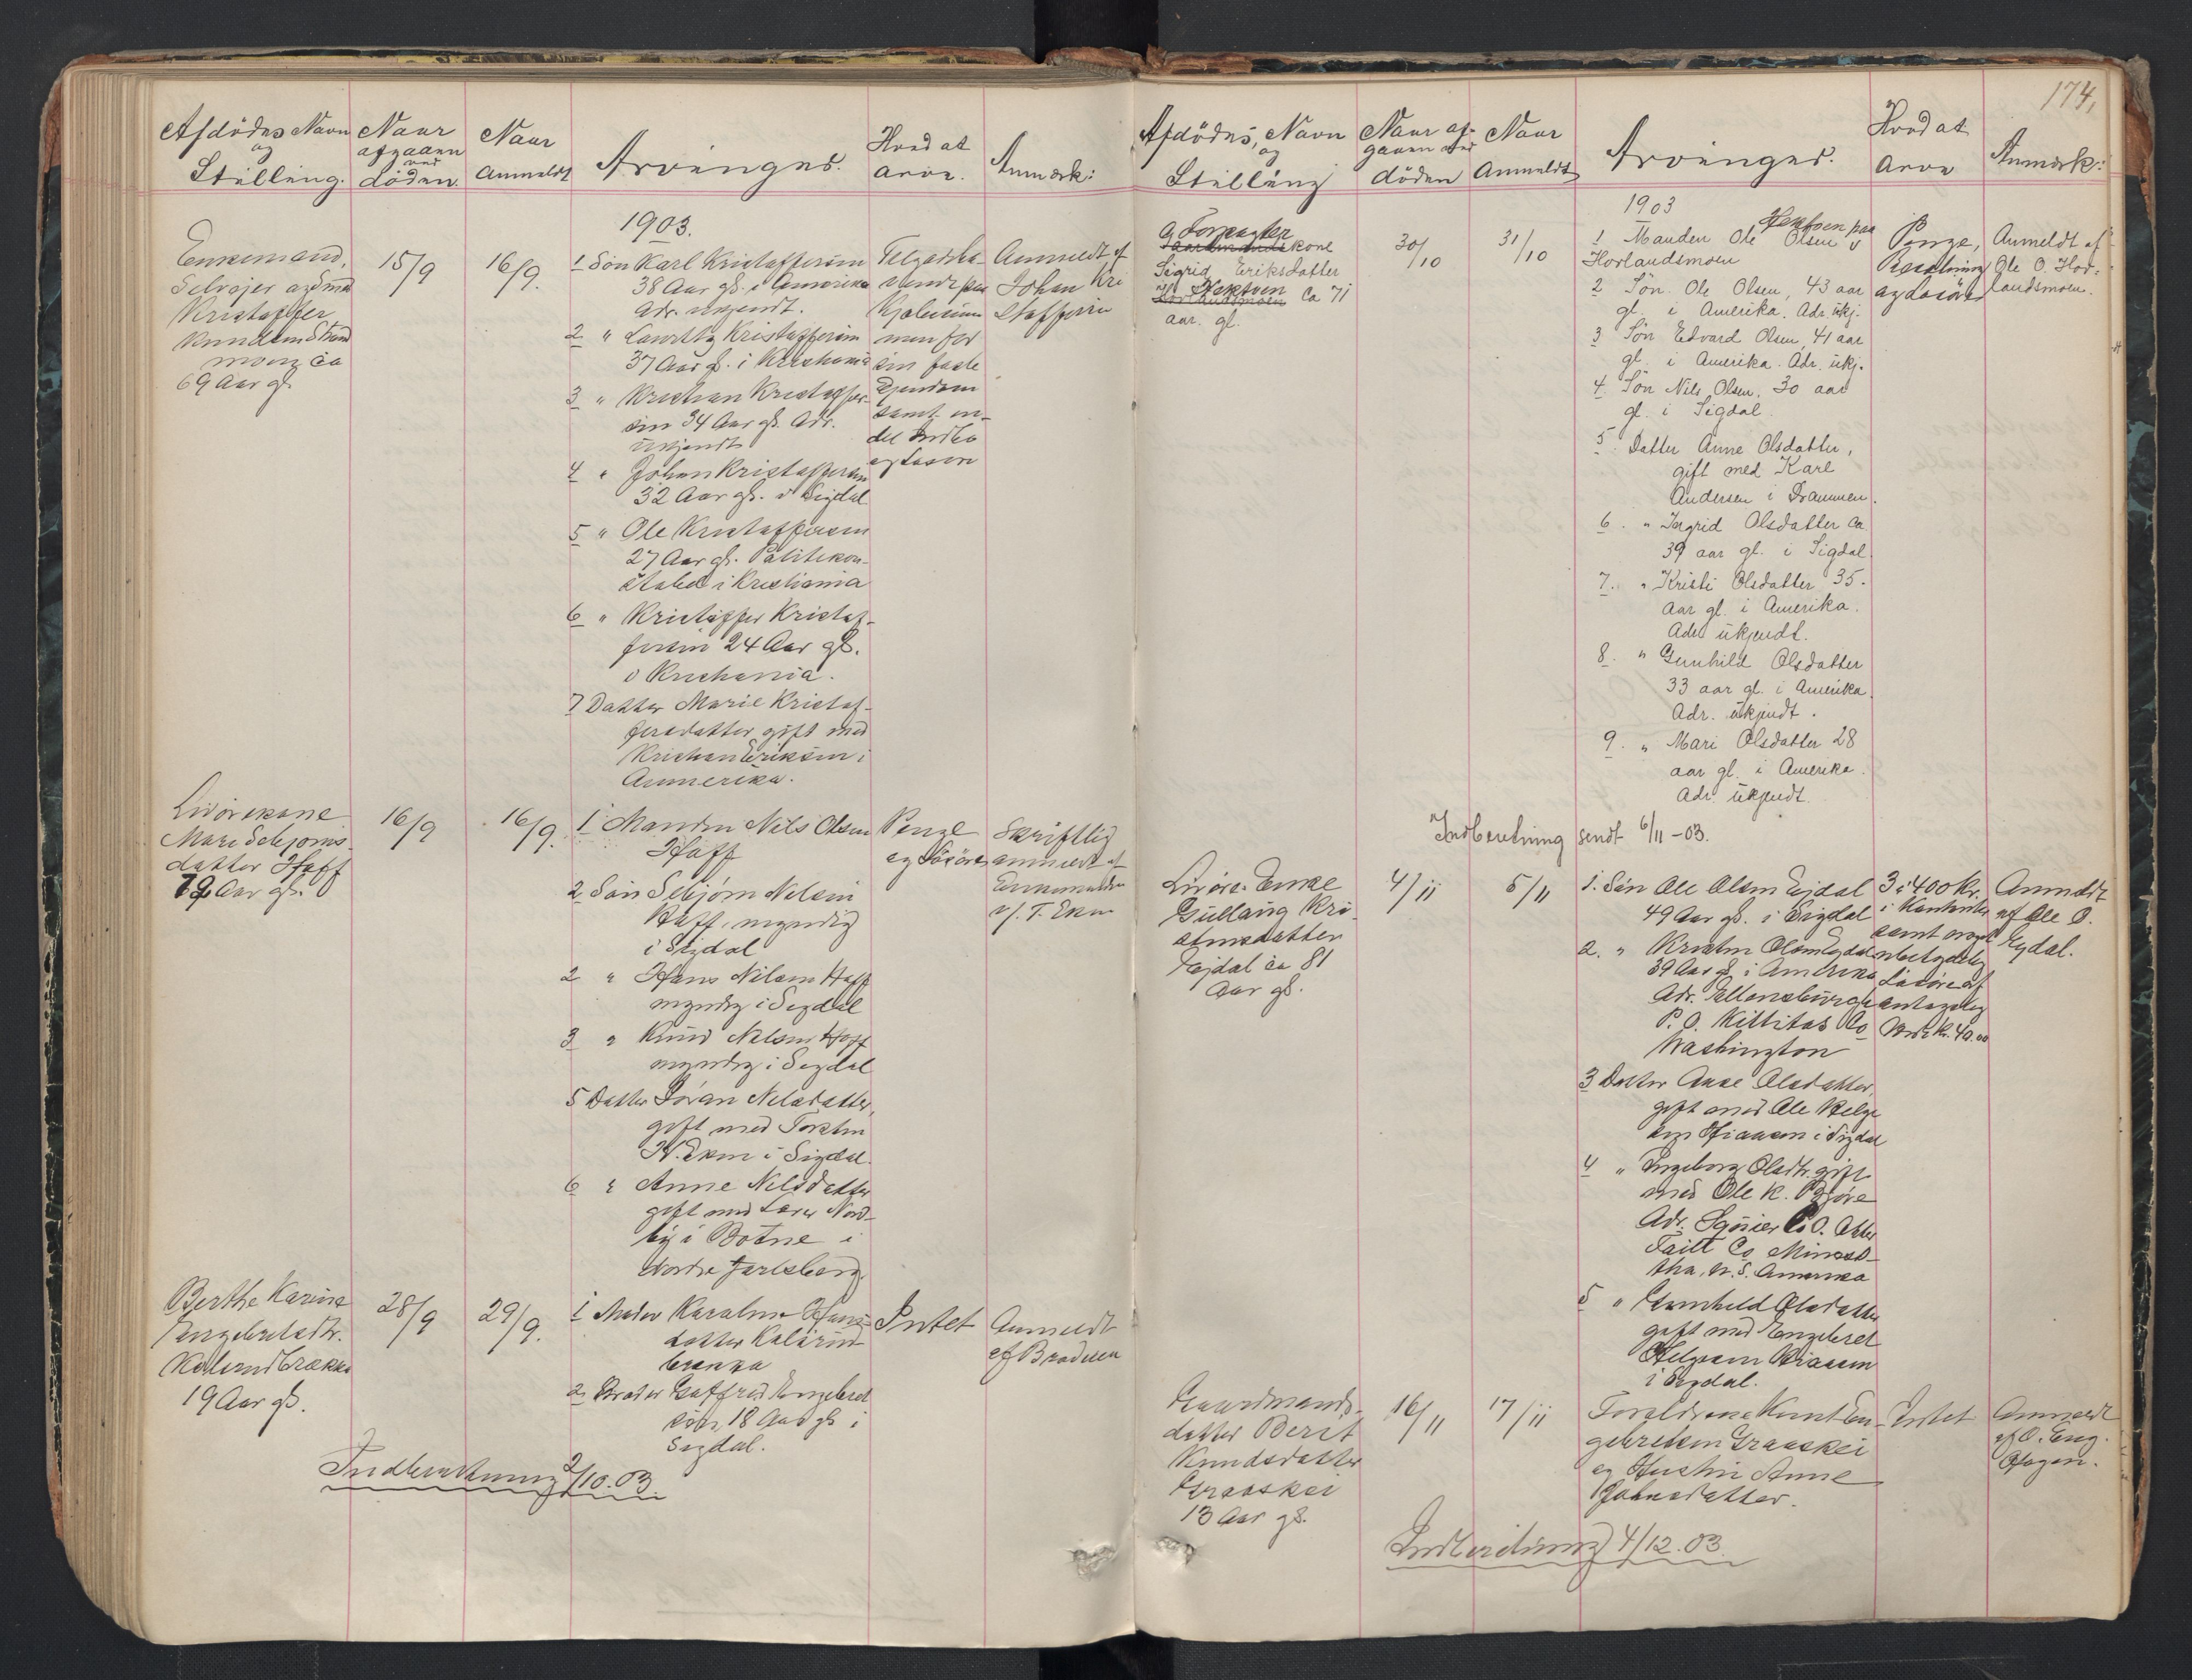 Afdödes Navn
og
Stilling.
Naar
afgaaen
ved
döden.
Naar
Anmeldt
Arvinger.
Hvad at
arve.
Anmærk:
1903.
Enkemand,
Selvejer
Kristoffer
Knudsen Strand
ca
69 Aar gl.
15/9
16/9.
1 Søn Karl Kristoffersen
38 Aar gl. i Amerika
Adr. ukjendt.
2 " Laurits Kristoffersen
37 Aar gl. i Kristiania
3 " Kristian Kristoffer-
sen 34 Aar gl. Adr.
ukjendt
4 " Johan Kristoffersen
32 Aar gl. i Sigdal
5 " Ole Kristoffersen
27 Aar gl. Politikon-
stabel i Kristiania
6 " Kristoffer Kristof-
fersen 24 Aar gl.
i Kristiania.
7 Datter Marie Kristof-
fersdatter gift med
Kristian Eriksen i
Ammerika.
for
sin faste
Ejendom
samt en-
del Indbo
og Løsøre
Anmeldt af
Johan Kri
stoffersen
Livörekone
Mari Sebjørns-
datter Hoff
Aar gl.
16/9
16/9.
1 Manden Nils Olsen
Hoff
2 Søn Sebjørn Nilsen
Hoff, myndig
i Sigdal
2 " Hans Nilsen Hoff
myndig i Sigdal
3 " Knud Nilsen Hoff
myndig i Sigdal
5 Datter Jøran Nilsdatter,
gift med Torsten
H. Ekern i Sigdal.
6 " Anne Nilsdatter
gift med Lærer Nord-
by i Botne i
Nordre Jarlsberg.
Penge
og Løsøre
Skriftlig
anmeldt af
Enkemanden
v/. T. Ekern
Berthe Karine
Engebretsdtr.
Kolsrudbrække
19 Aar gl.
28/9
29/9.
1 Moder Karoline Hans-
datter Kolsrud-
brække
2 Broder Gulfred Engebret
sen, 18 Aar gl. i
Sigdal.
Intet
Anmeldt
af Broderen
Indberetning 2/10.03.
174,
Afdödes, Navn
og
Stilling
Naar af-
gaaen ved
döden
Naar
Anmeldt
Arvinger.
Hvad at
Arve
Anmærk:
1903
Forpagter
Gaardmandskone
Sigrid Eriksdatter
Hextoen
Horlandsmoen Ca 71
aar. gl.
30/10
31/10
Hextoen paa
1 Manden Ole Olsen
Horlandsmoen
2 Søn Ole Olsen, 43 aar
gl. i Amerika. Adr. ukj.
3 Søn Edvard Olsen, 41 aar
gl. i Amerika. Adr. ukj.
4. Søn Nils Olsen, 30 aar
gl. i Sigdal.
5 Datter Anne Olsdatter,
gift med Karl
Andersen i Drammen.
6. " Ingrid Olsdatter Ca
39 aar gl. i Sigdal.
7. " Kristi Olsdatter 35.
aar gl. i Amerika.
Adr ukjendt.
8. " Gunhild Olsdatter
33 aar gl. i Amerika.
Adr. ukjendt.
9. " Mari Olsdatter 28
aar gl. i Amerika.
Adr. ukjendt.
Penge,
Besætning
og Løsöre
Anmeldt af
Ole O. Hor-
landsmoen.
Indberetning sendt 6/11 -03.
Livöre-Enke
Gullaug Kri-
stensdatter
Ejdal ca 81
Aar gl.
4/11
5/11
1. Søn Ole Olsen Eidal
49 Aar gl. i Sigdal
2. " Kristen Olsen Eydal
39 Aar gl. i Amerika
Adr. Ellensburgh
P. O. Kittitas Co
Washington
3 Datter Aase Olsdatter,
gift med Ole Helge
sen Hiaasen i Sigdal
4 " Ingeborg Olsdtr. gift
med Ole K. Bjøre
Adr. P.O. Otter
Taill Co Minnesо-
tha, N. S. Amerika
5 " Gunhild Olsdatter
gift med Engebret
Helgesen Hiaasen
i Sigdal.
3 à 400 Kr.
i Kontanter
samt noget
ubetydelig
Løsøre af
antagelig
Værdi Kr. 40.00
Anmeldt
af Ole O.
Eydal.
Gaardmands-
datter Berit
Knudsdatter
Graaskei
13 Aar gl.
16/11
17/11
Forældrene Knut En-
gebretsen Graaskei
og Hustru Anne
Johnsdatter.
Intet
Anmeldt
af O. Eng.
Hagen.
Indberetning 4/12.03.